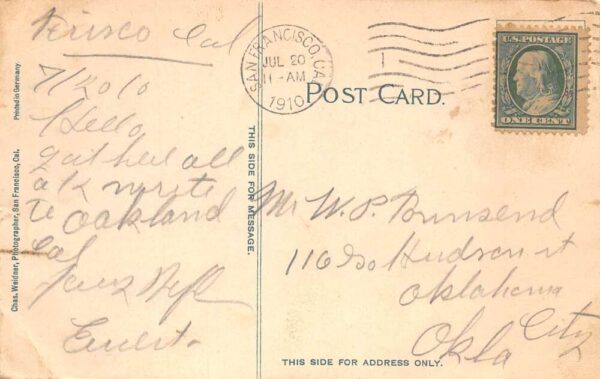 Frisco Cal
7/20/10
Hello
got here all
o k write
to Oakland
Cal
Yours
Ernest
Printed in Germany
Chas. Weidner, Photographer, San Francisco, Cal.
THIS SIDE FOR MESSAGE.
SAN FRANCISCO, CAL.
JUL 20
11-AM
1910
POST CARD.
U.S. POSTAGE
ONE CENT
Mr W. P. Townsend
116 So Hudson st
Oklahoma
City
Okla
THIS SIDE FOR ADDRESS ONLY.